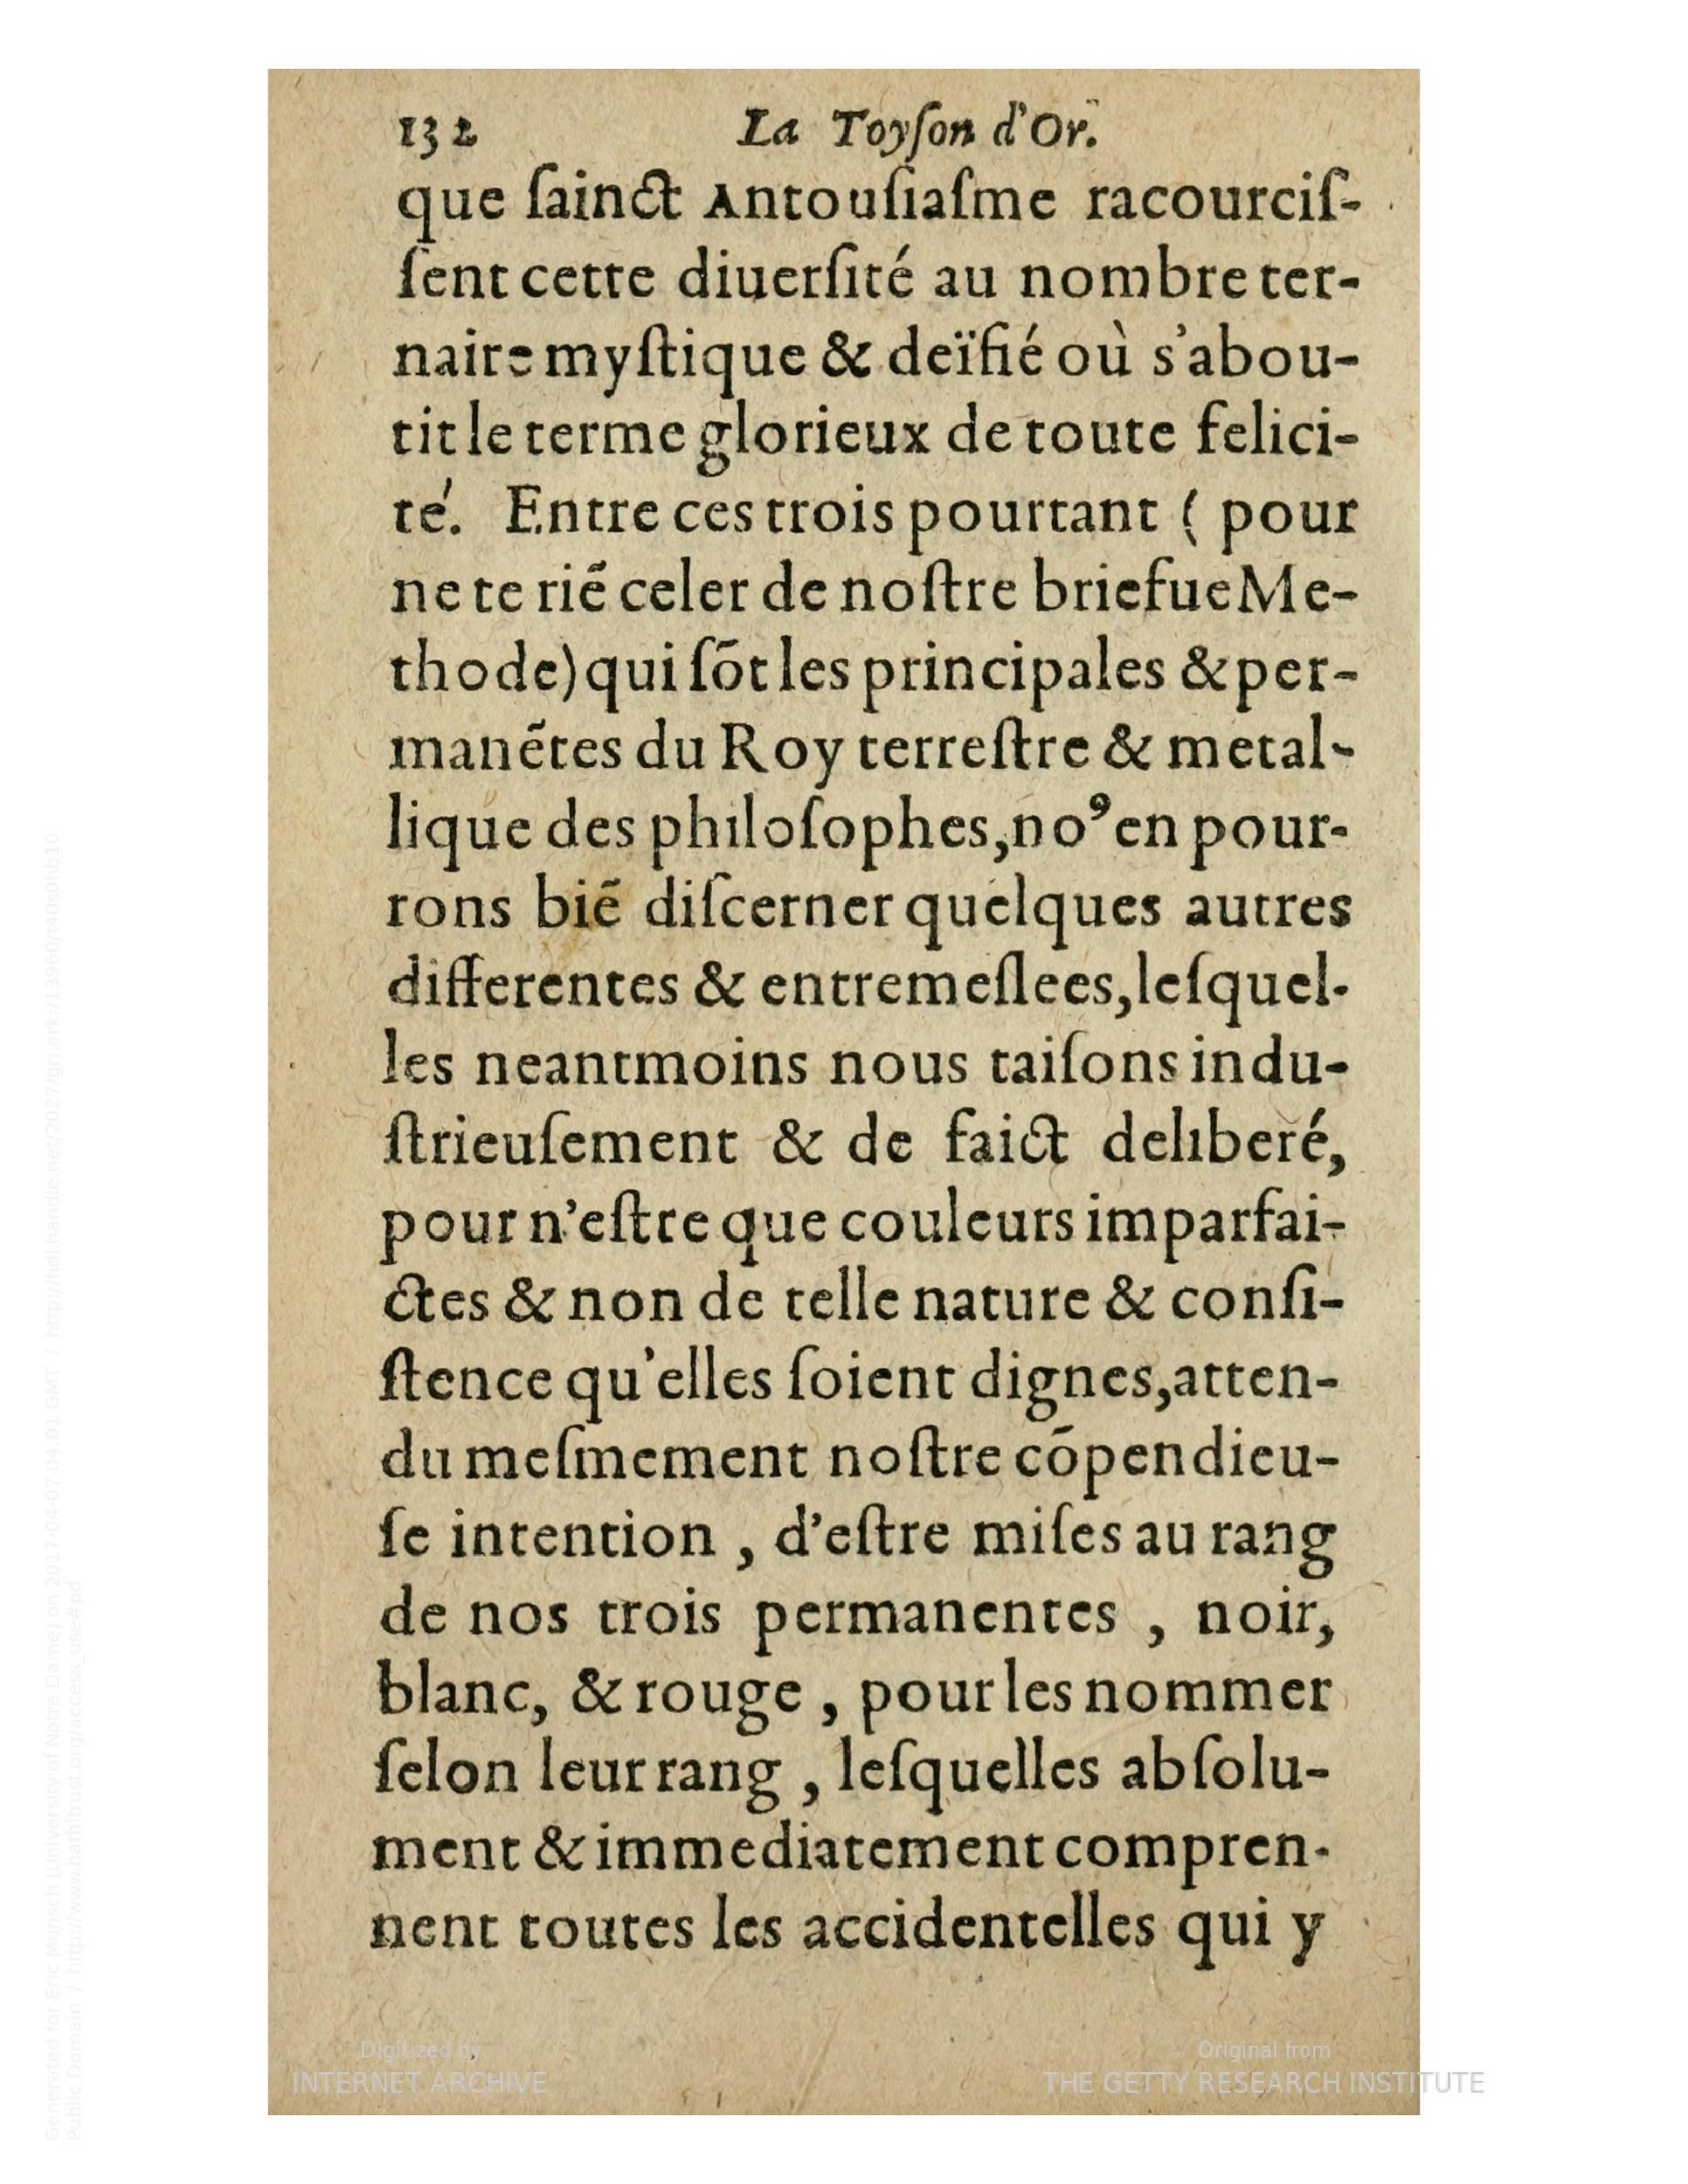 132 La Toyſon d'Or.
que ſainct Antouſiaſme racourciſ-
ſent cette diuerſité au nombre ter-
naire myſtique & deïfié où s'abou-
tit le terme glorieux de toute felici-
té. Entre ces trois pourtant ( pour
ne te riẽ celer de noſtre briefue Me-
thode) qui ſõt les principales & per-
manẽtes du Roy terreſtre & metal-
lique des philoſophes, noꝰ en pour-
rons biẽ diſcerner quelques autres
differentes & entremeſlees, leſquel-
les neantmoins nous taiſons indu-
ſtrieuſement & de faict deliberé,
pour n'eſtre que couleurs imparfai-
ctes & non de telle nature & conſi-
ſtence qu'elles ſoient dignes, atten-
du meſmement noſtre cõpendieu-
ſe intention , d'eſtre miſes au rang
de nos trois permanentes , noir,
blanc, & rouge , pour les nommer
ſelon leur rang , leſquelles abſolu-
ment & immediatement compren-
nent toutes les accidentelles qui y
Digitized by
INTERNET ARCHIVE
Original from
THE GETTY RESEARCH INSTITUTE
Generated for Eric Munsch (University of Notre Dame) on 2017-04-07 04:01 GMT / http://hdl.handle.net/2027/gri.ark:/13960/t40s0hb10
Public Domain / http://www.hathitrust.org/access_use#pd